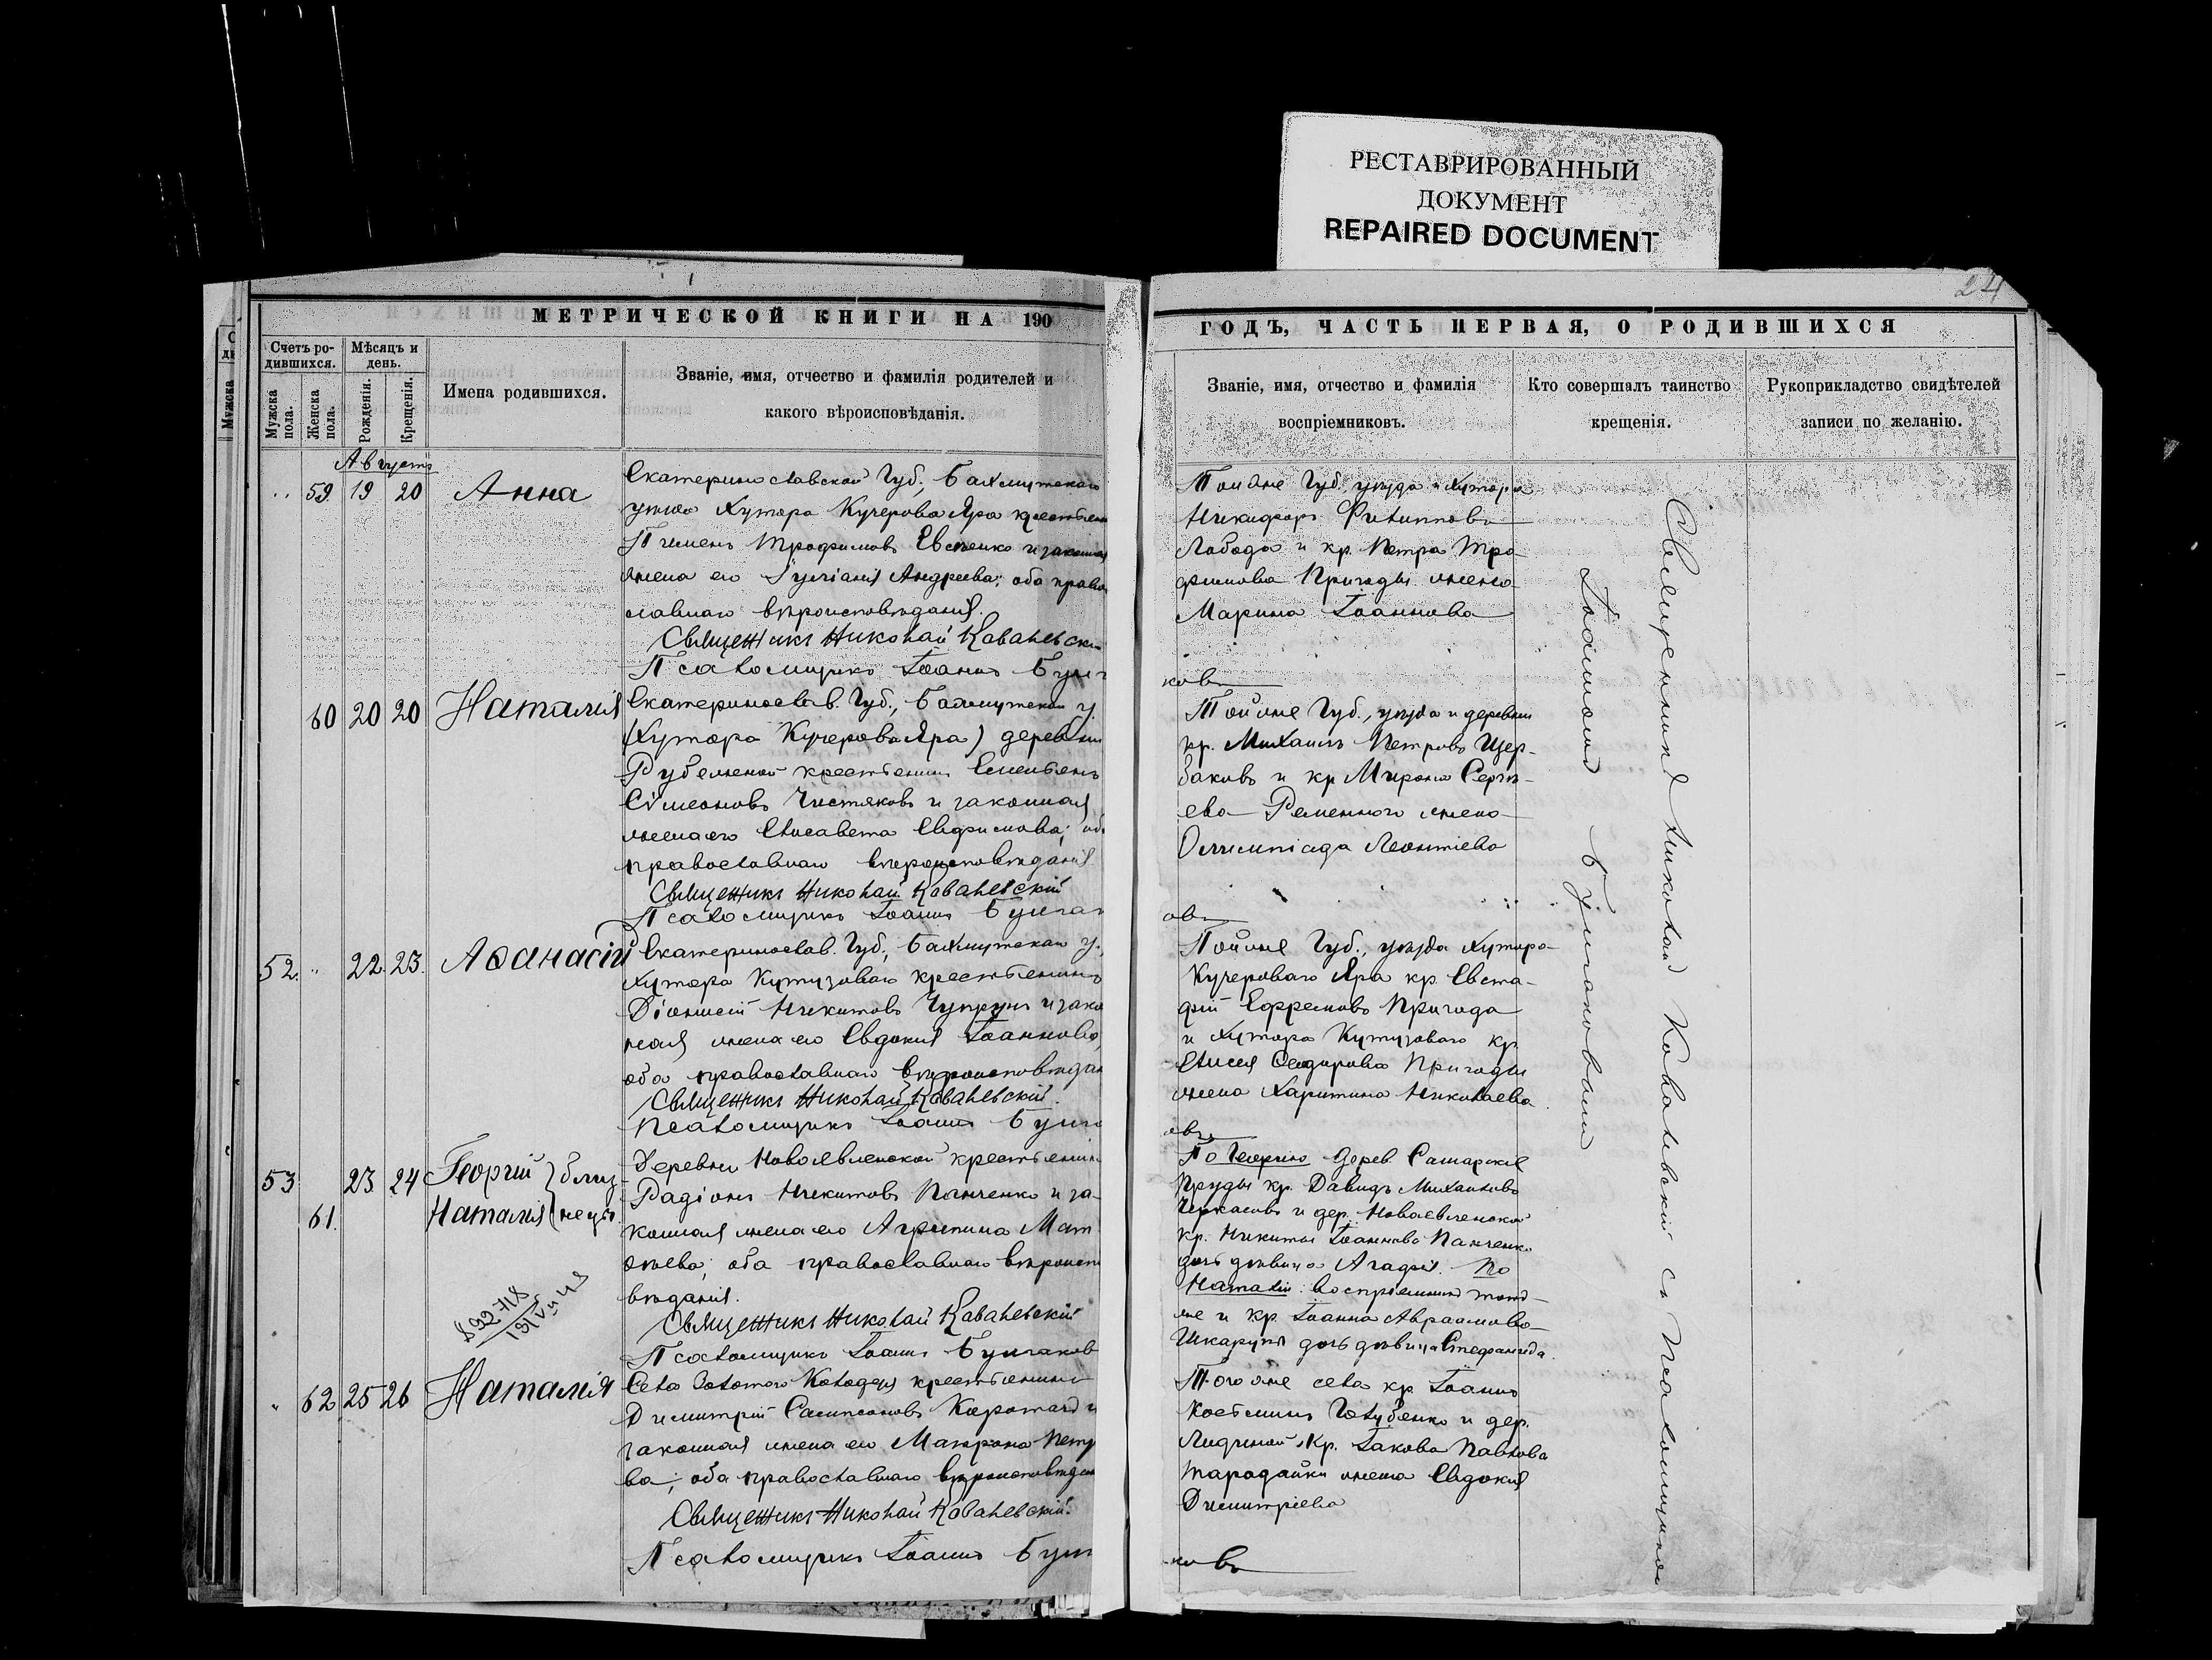 РЕСТАВРИРОВАННЫЙ
ДОКУМЕНТ
REPAIRED DOCUMENT
24
МЕТРИЧЕСКОЙ КНИГИ НА 190
Счетъ ро-
дившихся.
Мужска
пола.
Женска
пола.
Мѣсяцъ и
день.
Рожденія.
Крещенія.
Имена родившихся.
Званіе, имя, отчество и фамилія родителей и
какого вѣроисповѣданія.
Августъ
59 19 20 Анна
Екатеринославской Губ., Бахмутскаго
уѣзда Хутора Кучерова Яра крестьян
Пимень Трофимовъ Евсѣенко и законная
жена его Іуліанія Андреева; оба право
славнаго вѣроисповѣданія.
Священникъ Николай Ковалевскі
Псаломщикъ Іоаннъ Булга
60 20 20 Наталія
Екатеринослав. Губ., Бахмутскаго у.
(Хутора Кучерова Яра) деревни
Рубежной крестьянинъ Емельянъ
Сѵмеоновъ Чистяковъ и законная
жена его Елисавета Евфимова; оба
православнаго вѣроисповѣданія
Священникъ Николай Ковалевскій
Псаломщикъ Іоаннъ Булгак
52. " 22. 23. Аѳанасій
Екатеринослав. Губ., Бахмутскаго у.,
хутора Кутузоваго крестьянинъ
Діонисій Никитовъ Чупрунъ и зако
ная жена его Евдокія Іоаннова,
оба православнаго вѣроисповѣдан
Священникъ Николай Ковалевскій.
Псаломщикъ Іоаннъ Булга
53 23 24 Георгій } близ-
61. Наталія } нецы
Деревни Новоявленской крестьянинъ
Радіонъ Никитовъ Панченко и за-
конная жена его Агрипина Мат
ѳѣева; оба православнаго вѣроиспо
вѣданія.
Священникъ Николай Ковалевскій
Псаломщикъ Іоаннъ Булгаков
" 62 25 26 Наталія
Села Золотого Колодезя крестьянинъ
Димитрій Сампсоновъ и
законная жена его Матрона Петр
ва; оба православнаго вѣроисповѣдан
Священникъ Николай Ковалевскій.
Псаломщикъ Іоаннъ Булг
ГОДЪ, ЧАСТЬ ПЕРВАЯ, О РОДИВШИХСЯ
Званіе, имя, отчество и фамилія
воспріемниковъ.
Кто совершалъ таинство
крещенія.
Рукоприкладство свидѣтелей
записи по желанію.
Той же Губ. уѣзда и Хутора
Никифоръ Филипповъ
Лобода и кр. Петра Тро
фимова Пригоды жена
Марина Іоаннова
ковъ
Той же Губ., уѣзда и деревни
кр. Михаилъ Петровъ Щер-
баковъ и кр Мирона Сергѣ-
ева Ременного жена
Олимпіада Леонтіева
овъ
Той же Губ., уѣзда Хутора
Кучероваго Яра кр. Евста-
фій Ефремовъ Пригода
и хутора Кутузоваго кр.
Елисея Пригоды
жена Харитина Николаева
овъ
По Георгію дерев. Самарскіе
Пруды кр. Давидъ Михаиловъ
Черкасовъ и дер. Новоявленской
кр. Никиты Іоаннова Панченко
дочь дѣвица Агафія. По
Наталіи: воспріемникъ тотъ
же и кр. Іоанна Авраамова
Шкарупы дочь дѣвица Стефанида.
Того же села кр Іоаннъ
Косьминъ Голубенко и дер.
Лидиной кр. Іакова Павлова
Тарадайки жена Евдокія
Димитріева
ковъ
Священникъ Николай Ковалевскій съ Псаломщикомъ
Іоанномъ Булгаковымъ